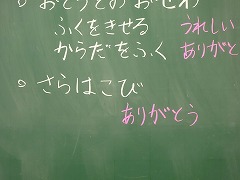 ○ おとうとのおせわ
ふくをきせる うれしい
からだをふく ありがと
○ さらはこび
ありがとう